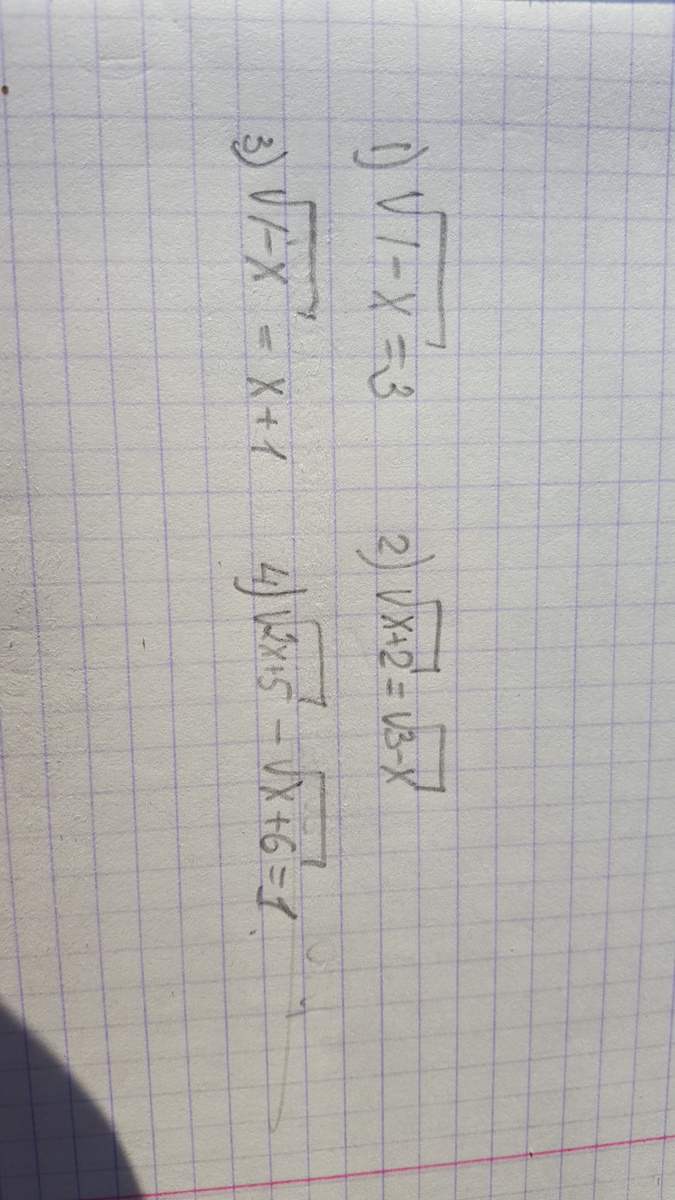 1) √1-x = 3 2) √x+2 = √3-x
3) √1-x = x+1 4) √2x+5 - √x+6 = 1